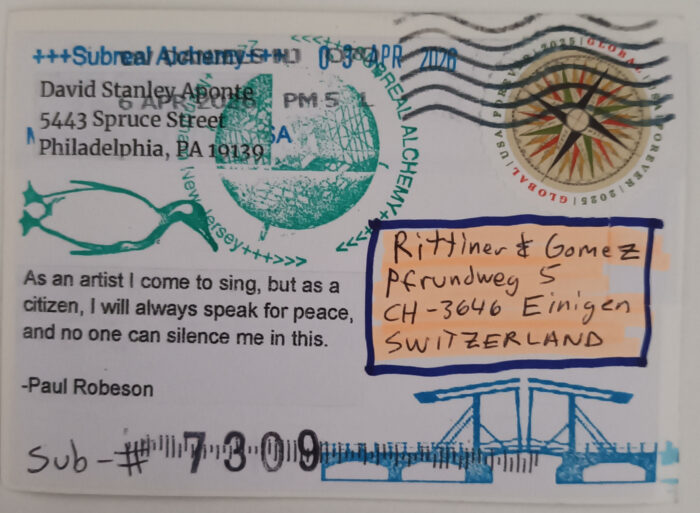 +++Subreal Alchemy+++
03 APR 2026
6 APR 2026 PM 5 L
David Stanley Aponte
5443 Spruce Street
Philadelphia, PA 19139
REAL ALCHEMY+++
New Jersey+++>>>
GLOBAL | USA | FOREVER | 2025 | GLOBAL | USA | FOREVER | 2025
Rittiner & Gomez
Pfrundweg 5
CH-3646 Einigen
SWITZERLAND
As an artist I come to sing, but as a
citizen, I will always speak for peace,
and no one can silence me in this.
-Paul Robeson
Sub-# 7309